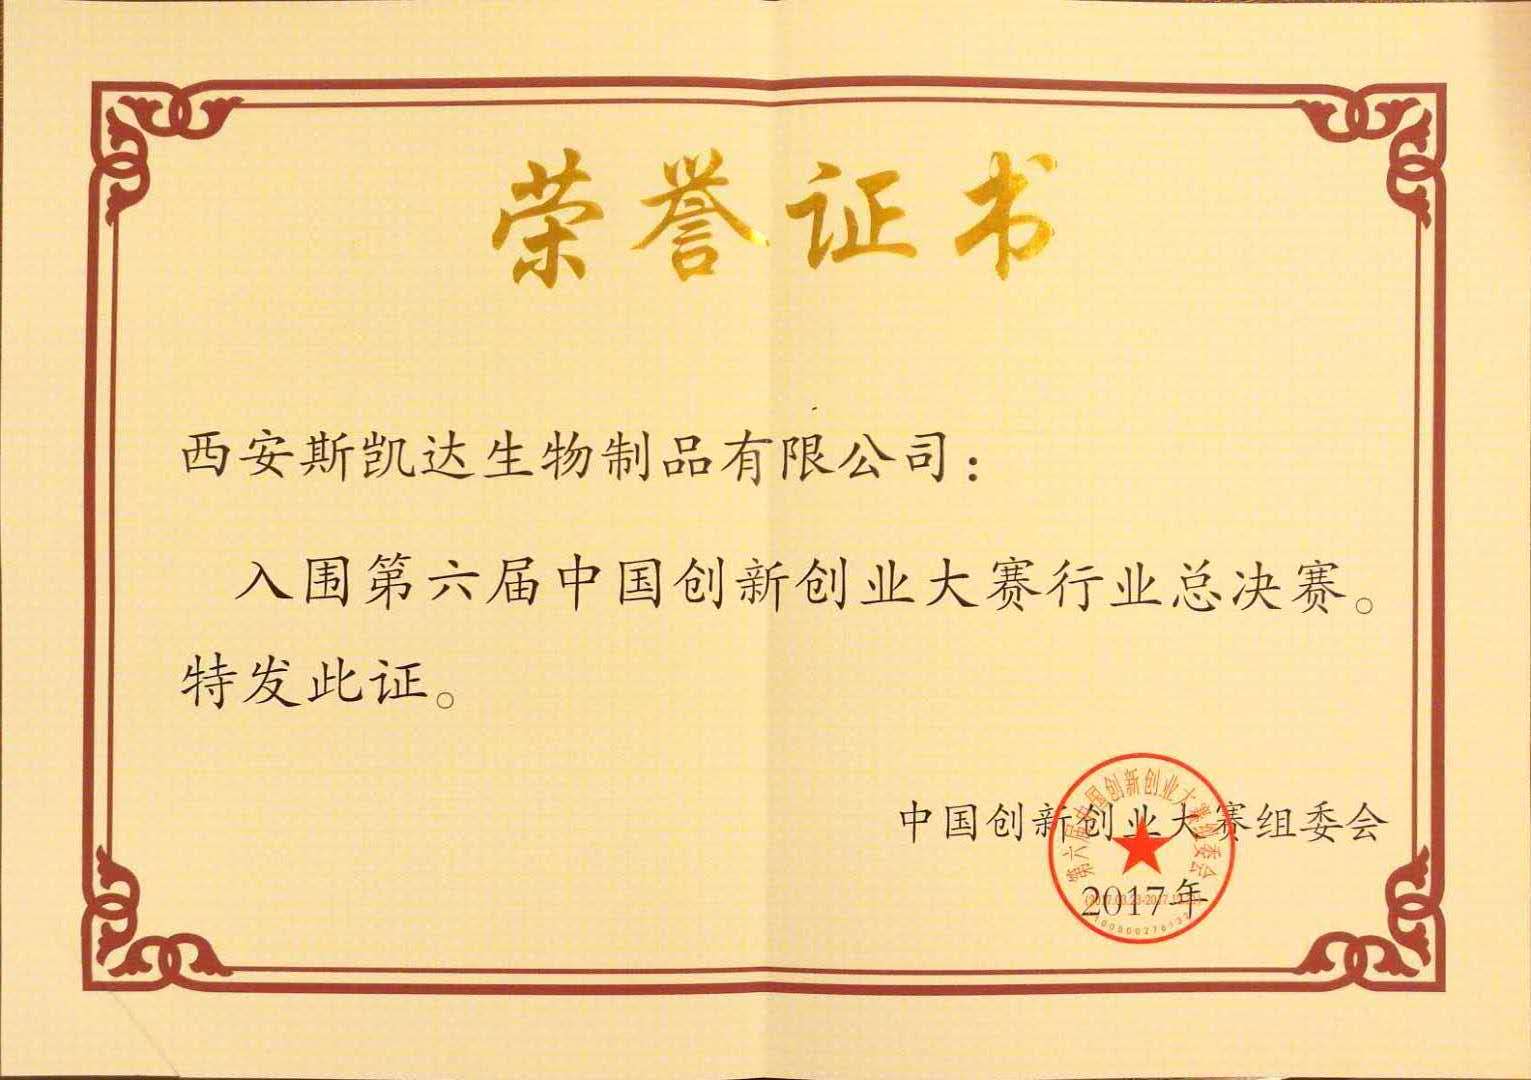 荣誉证书
西安斯凯达生物制品有限公司：
入围第六届中国创新创业大赛行业总决赛。
特发此证。
中国创新创业大赛组委会
第六届中国创新创业大赛组委会
2017年